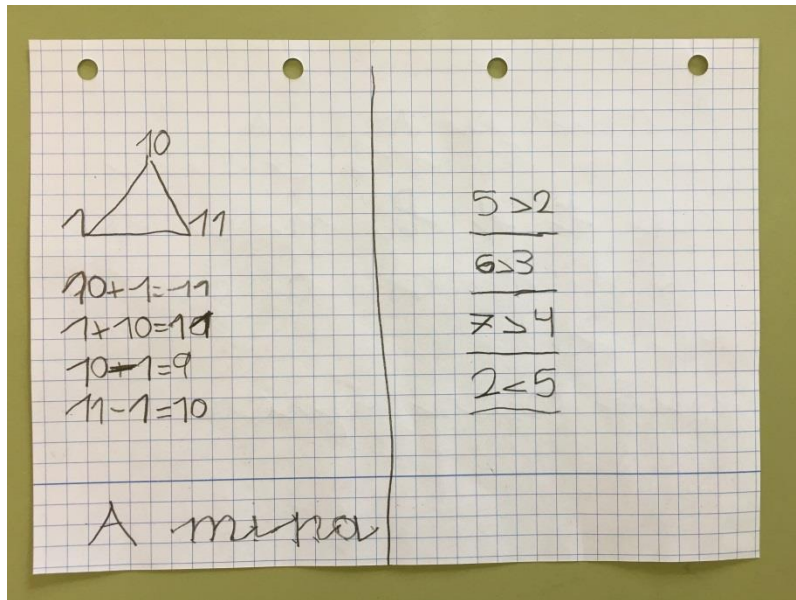 10
1 11
10+1=11
1+10=11
10-1=9
11-1=10
A mina
5>2
6>3
7>4
2<5